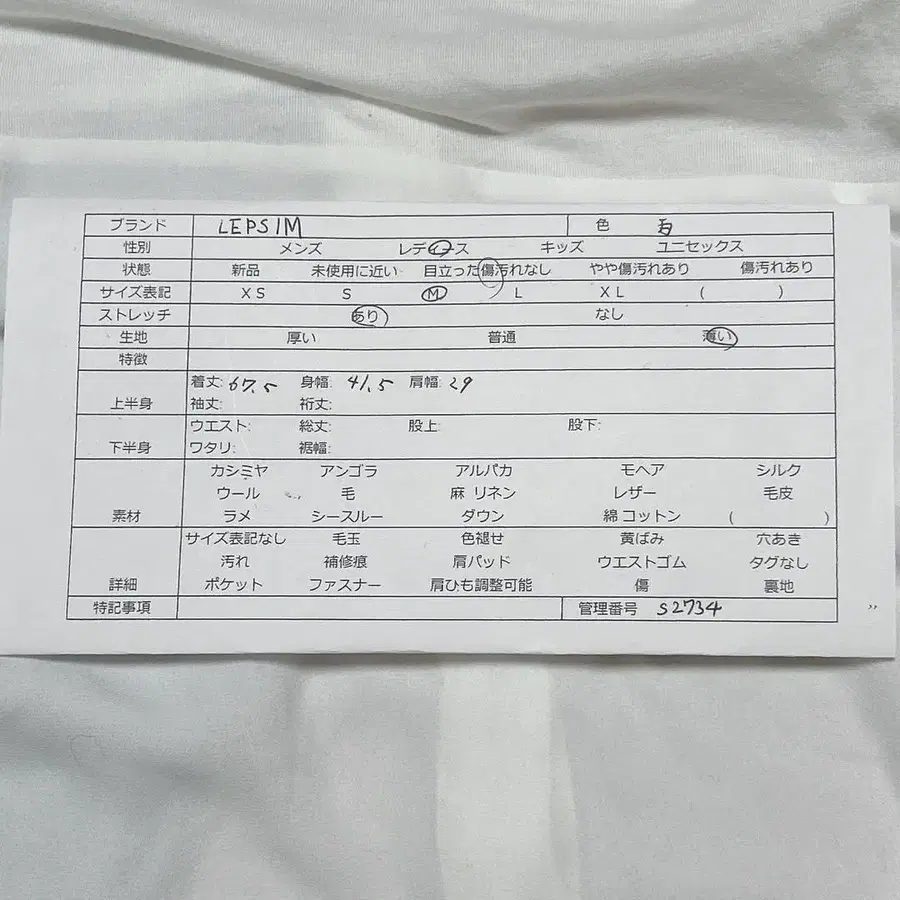 ブランド LEPSIM 色 白
性別 メンズ レディース キッズ ユニセックス
状態 新品 未使用に近い 目立った傷汚れなし やや傷汚れあり 傷汚れあり
サイズ表記 XS S M L XL ( )
ストレッチ あり なし
生地 厚い 普通 薄い
特徴
着丈: 67.5 身幅: 41.5 肩幅: 29
上半身 袖丈: 裄丈:
ウエスト: 総丈: 股上: 股下:
下半身 ワタリ: 裾幅:
カシミヤ アンゴラ アルパカ モヘア シルク
ウール 毛 麻 リネン レザー 毛皮
素材 ラメ シースルー ダウン 綿 コットン ( )
サイズ表記なし 毛玉 色褪せ 黄ばみ 穴あき
汚れ 補修痕 肩パッド ウエストゴム タグなし
詳細 ポケット ファスナー 肩ひも調整可能 傷 裏地
特記事項 管理番号 S2734